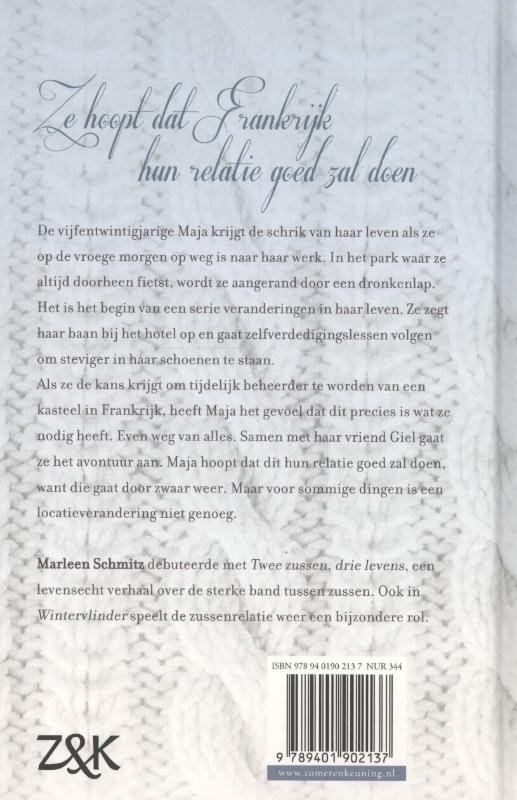 Ze hoopt dat Frankrijk
hun relatie goed zal doen
De vijfentwintigjarige Maja krijgt de schrik van haar leven als ze
op de vroege morgen op weg is naar haar werk. In het park waar ze
altijd doorheen fietst, wordt ze aangerand door een dronkenlap.
Het is het begin van een serie veranderingen in haar leven. Ze zegt
haar baan bij het hotel op en gaat zelfverdedigingslessen volgen
om steviger in haar schoenen te staan.
Als ze de kans krijgt om tijdelijk beheerder te worden van een
kasteel in Frankrijk, heeft Maja het gevoel dat dit precies is wat ze
nodig heeft. Even weg van alles. Samen met haar vriend Giel gaat
ze het avontuur aan. Maja hoopt dat dit hun relatie goed zal doen,
want die gaat door zwaar weer. Maar voor sommige dingen is een
locatieverandering niet genoeg.
Marleen Schmitz debuteerde met Twee zussen, drie levens, een
levensecht verhaal over de sterke band tussen zussen. Ook in
Wintervlinder speelt de zussenrelatie weer een bijzondere rol.
ISBN 978 94 0190 213 7 NUR 344
9 789401 902137
www.zomerenkeuning.nl
Z&K